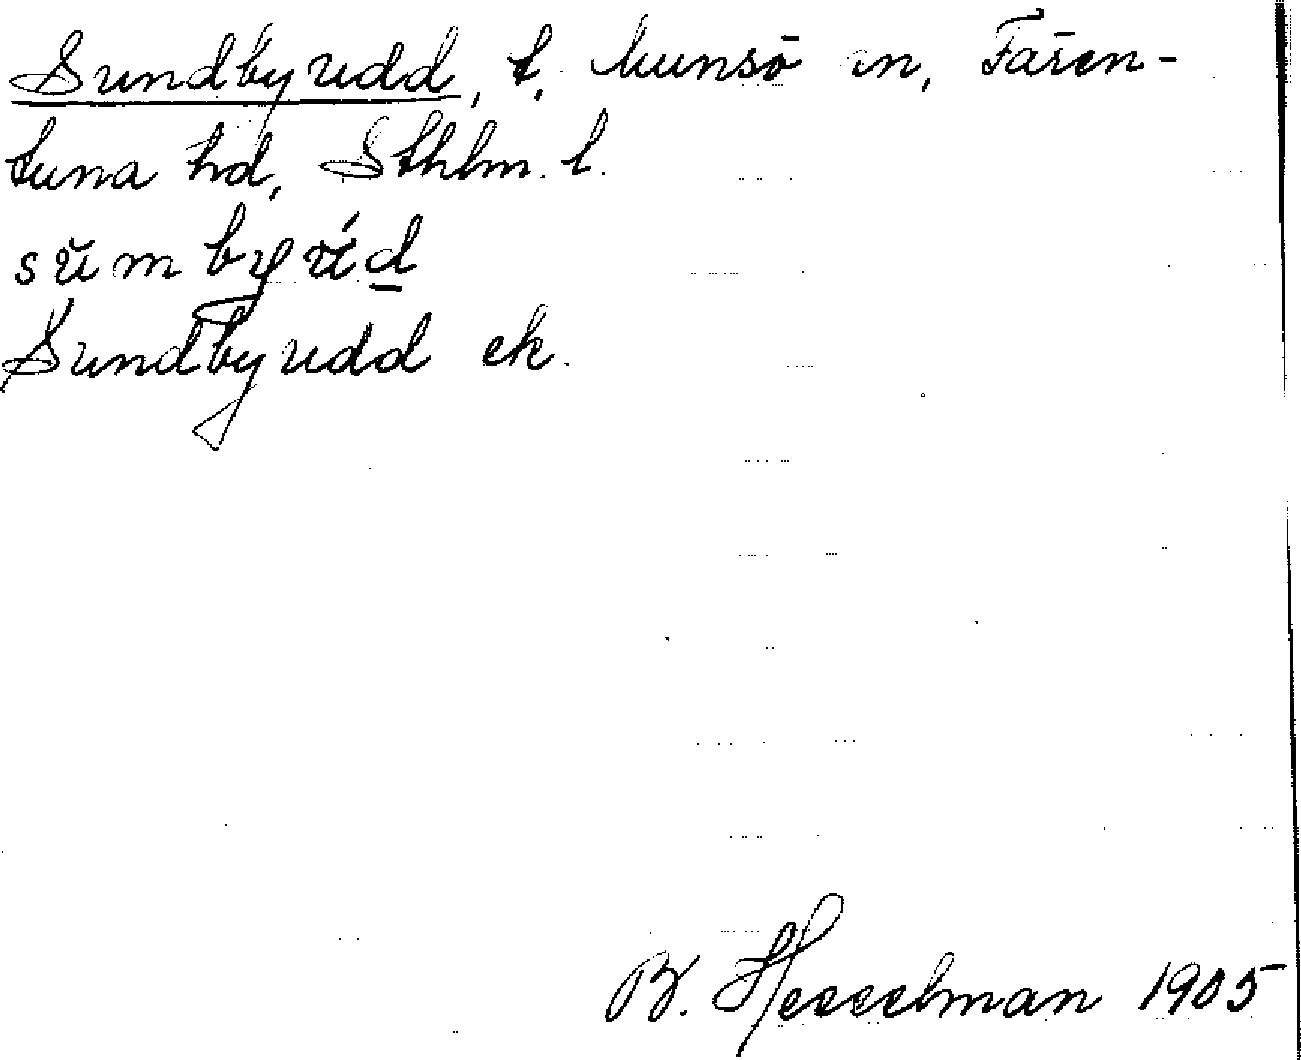 Sundby udd, t. Munsö sn, Fären-
tuna hd, Sthlm. l.
sŭm by úd
Sundby udd ek.
B. Hesselman 1905